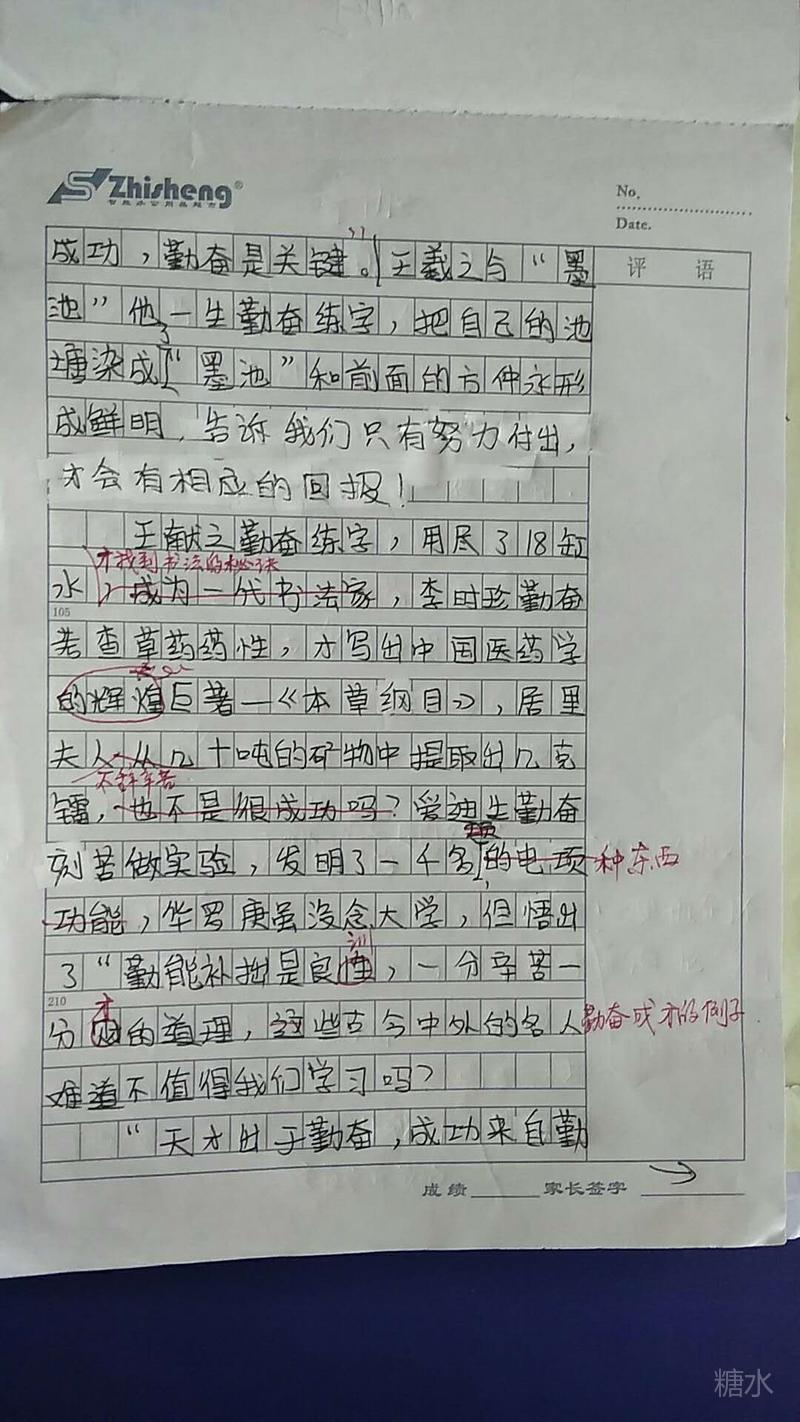 Zhisheng®
No.
Date.
评 语
成功，勤奋是关键。王羲之与“墨
池”他一生勤奋练字，把自己的池
了
塘染成“墨池”和前面的方仲永形
成鲜明，告诉我们只有努力付出，
才会有相应的回报！
王献之勤奋练字，用尽了18缸
才找到书法的秘诀
水，成为一代书法家，李时珍勤奋
105
苦查草药药性，才写出中国医药学
的辉煌巨著—《本草纲目》，居里
夫人从几十吨的矿物中提取出几克
不辞辛苦
镭，也不是很成功吗？爱迪生勤奋
刻苦做实验，发明了一千多的电项
种东西
功能，华罗庚虽没念大学，但悟出
训
了“勤能补拙是良性，一分辛苦一
210
才
分的道理，这些古今中外的名人
勤奋成才的例子
难道不值得我们学习吗？
“天才出于勤奋，成功来自勤
成绩 家长签字
糖水